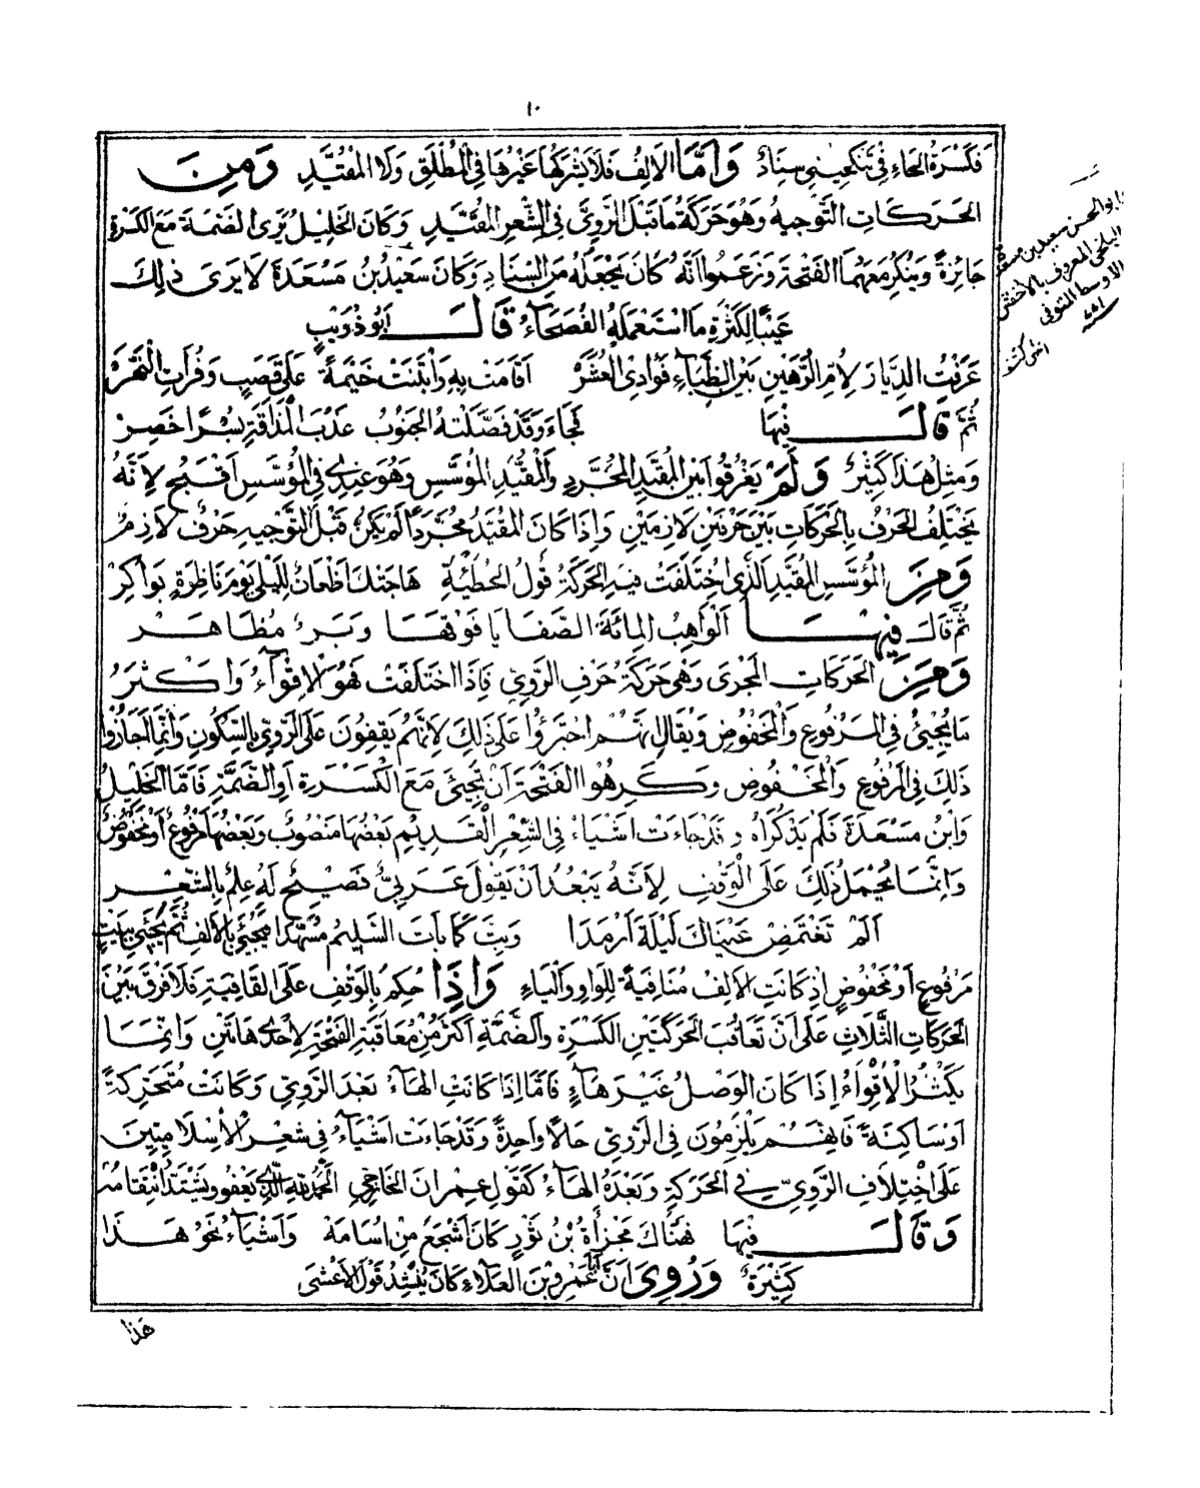 ١٠
فكسرة الحاء في تنكحيني سناد وأما الالف فلا يشركها غيرها في المطلق ولا المقيد ومن
الحركات التوجيه وهو حركة ما قبل الروي في الشعر المقيد وكان الخليل يرى الضمة مع الكسرة
جائزة وينكر معهما الفتحة وزعموا أنه كان يجعله من السناد وكان سعيد بن مسعدة لا يرى ذلك
عيبا لكثرة ما استعمله الفصحاء قال أبو ذويب
عرفت الديار لأم الرهين بين الظباء فوادي العشر أقامت به وابتنت خيمة على قصب وفرات النهر
ثم قال فيها فجاء وقد فصلته الجنوب عذب المذاقة بسرا خصر
ومثل هذا كثير ولم يفرقوا بين المقيد المجرد والمقيد المؤسس وهو عندي في المؤسس أقبح لأنه
يختلف الحرف بالحركات بين حرفين لازمين وإذا كان المقيد مجردا لم يكن قبل التوجيه حرف لازم
ومن المؤسس المقيد الذي اختلفت فيه الحركة قول الحطيئة هاجتك أظعان لليلى يوم ناظرة بواكر
ثم قال فيها الواهب المائة الصفايا فوقها وبر مظاهر
ومن الحركات المجرى وهي حركة حرف الروي فإذا اختلفت فهو الإقواء وأكثر
ما يجيئ في المرفوع والمخفوض ويقال إنهم اجترؤا على ذلك لأنهم يقفون على الروي بالسكون وإنما أجازوا
ذلك في المرفوع والمخفوض وكرهوا الفتحة أن تجيئ مع الكسرة أو الضمة فأما الخليل
وابن مسعدة فلم يذكراه وقد جاءت أشياء في الشعر القديم بعضها منصوب وبعضها مرفوع أو مخفوض
وإنما يحمل ذلك على الوقف لأنه يبعد أن يقول عربي فصيح له علم بالشعر
ألم تغتمض عيناك ليلة أرمدا وبت كما بات السليم مسهدا فيجيئ بالألف ثم يجيئ ببيت
مرفوع أو مخفوض إذ كانت الألف منافية للواو والياء وإذا حكم بالوقف على القافية فلا فرق بين
الحركات الثلاث على أن تعاقب الحركتين الكسرة والضمة أكثر من معاقبة الفتحة لإحدى هاتين وإنما
يكثر الإقواء إذا كان الوصل غير هاء فأما إذا كانت الهاء بعد الروي وكانت متحركة
أو ساكنة فإنهم يلزمون في الروي حالا واحدة وقد جاءت أشياء في شعر الإسلاميين
على اختلاف الروي في الحركة وبعده الهاء كقول عمران الخارجي الحمد لله الذي يعفو ويشتد انتقامه
وقال فيها هناك مجزأة بن ثور كان أشجع من أسامة وأشياء نحو هذا
كثيرة وروي أن أبا عمرو بن العلاء كان ينشد قول الأعشى
هذا
ابو الحسن سعيد بن مسعدة
البلخي المعروف بالاخفش
الاوسط المتوفى